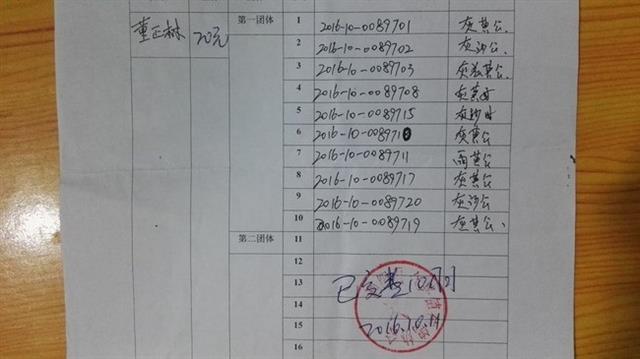 董正林 20元 第一团体 1 2016-10-0089701 灰黄公
2 2016-10-0089702 灰沙公
3 2016-10-0089703 灰黄公
4 2016-10-0089708 灰黄
5 2016-10-0089715 灰沙
6 2016-10-008971 灰黄公
7 2016-10-0089711 雨黄公
8 2016-10-0089717 灰黄公
9 2016-10-0089720 灰沙公
10 2016-10-0089719 灰黄公
第二团体 11
12
13 已交
14
15 2016.10.
16